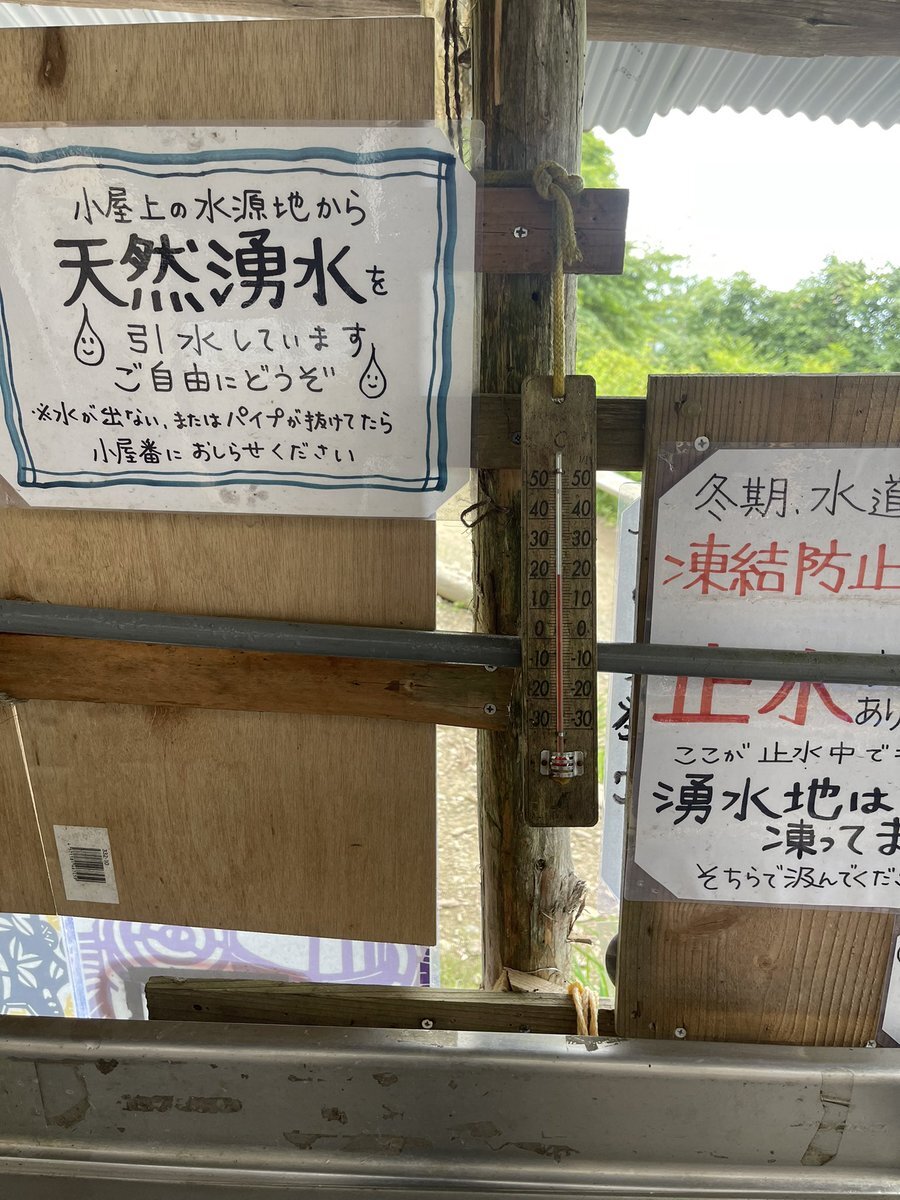 小屋上の水源地から
天然湧水を
引水しています
ご自由にどうぞ
※水が出ない、またはパイプが抜けてたら
小屋番におしらせください
C
50 50
40 40
30 30
20 20
10 10
0 0
-10 -10
-20 -20
-30 -30
冬期、水道
凍結防止
止水
あり
ここが止水中でも
湧水地は
凍ってま
そちらで汲んでくださ